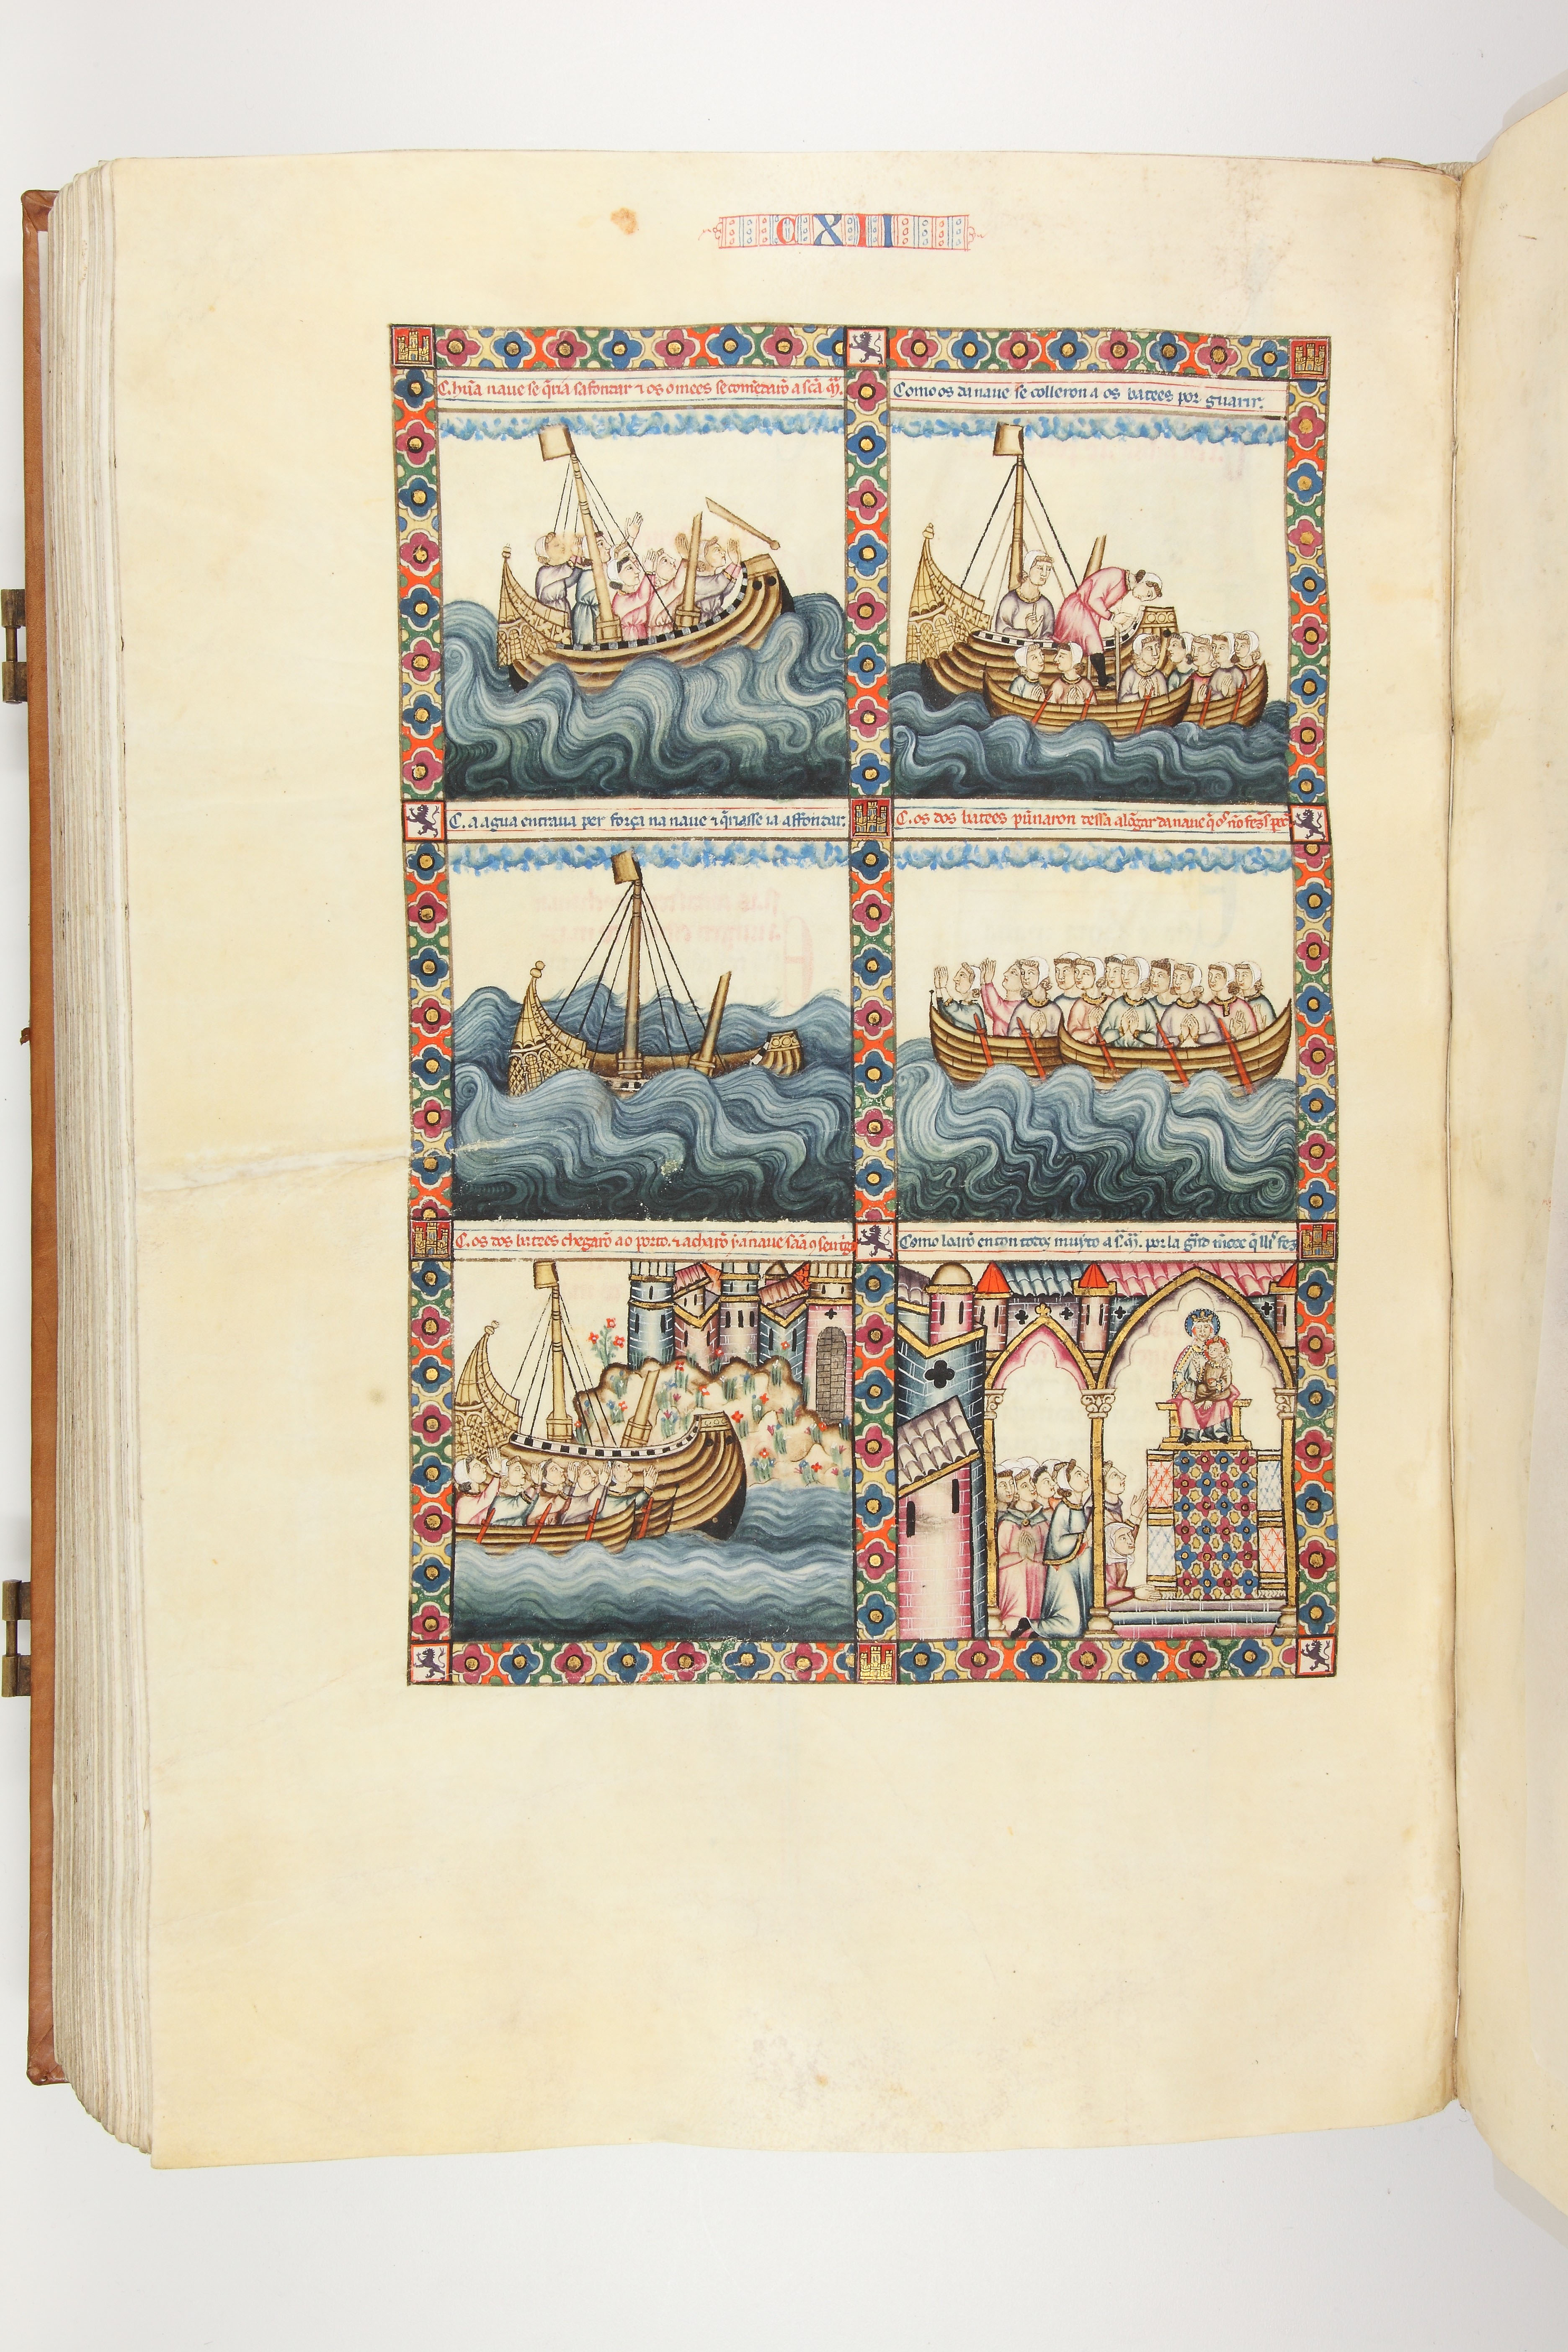 CXII
C. hũa naue se q̃ria safondar ⁊ os omees se comẽdarõ a scã. m̃.
Como os da naue se colleron a os batees por guarir.
C. a agua entraua per força na naue ⁊ q̃riasse ia affondar.
C. os dos batees punnaron dessa alõgar da naue q̃
C. os dos batees chegarõ ao porto. ⁊ acharõ y a naue sãa
Como loarõ enton todos muyto a s. m̃. por la grãd merçee q̃ lles fez